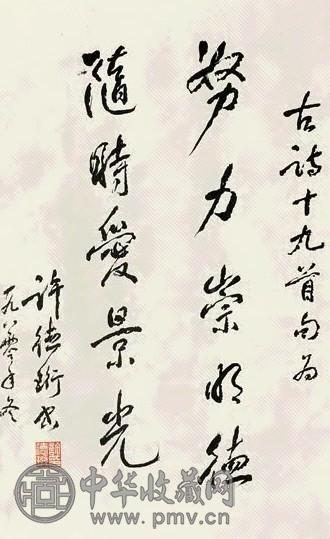 古诗十九首句为
努力崇明德
隨時愛景光
许德珩书
一九八零年冬
中华收藏网
www.pmv.cn